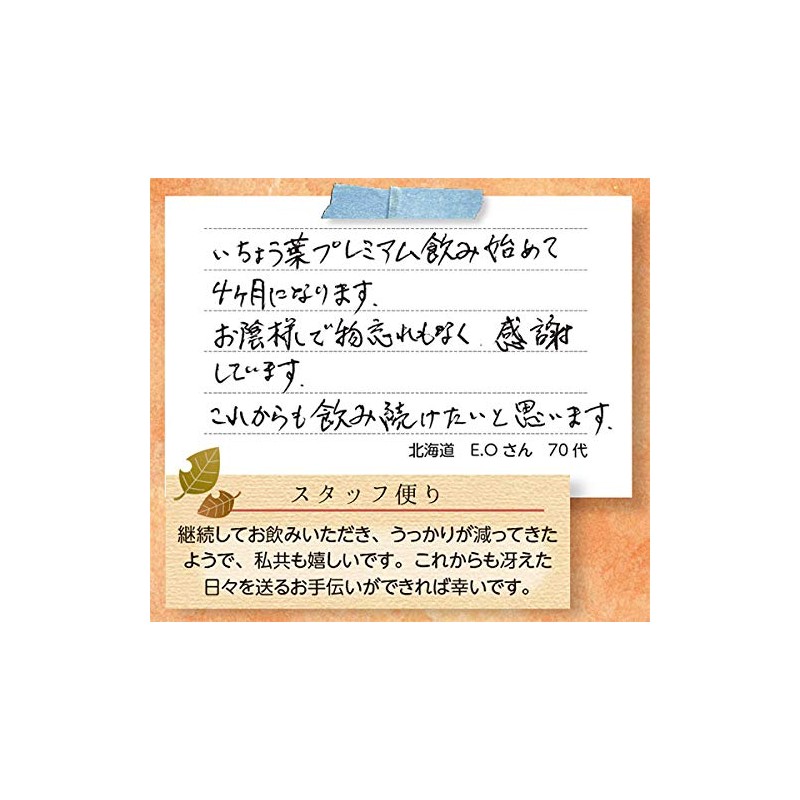 いちょう葉プレミアム飲み始めて
4ヶ月になります.
お陰様で物忘れもなく.感謝
しています.
これからも飲み続けたいと思います.
北海道 E.Oさん 70代
スタッフ便り
継続してお飲みいただき、うっかりが減ってきた
ようで、私共も嬉しいです。これからも冴えた
日々を送るお手伝いができれば幸いです。